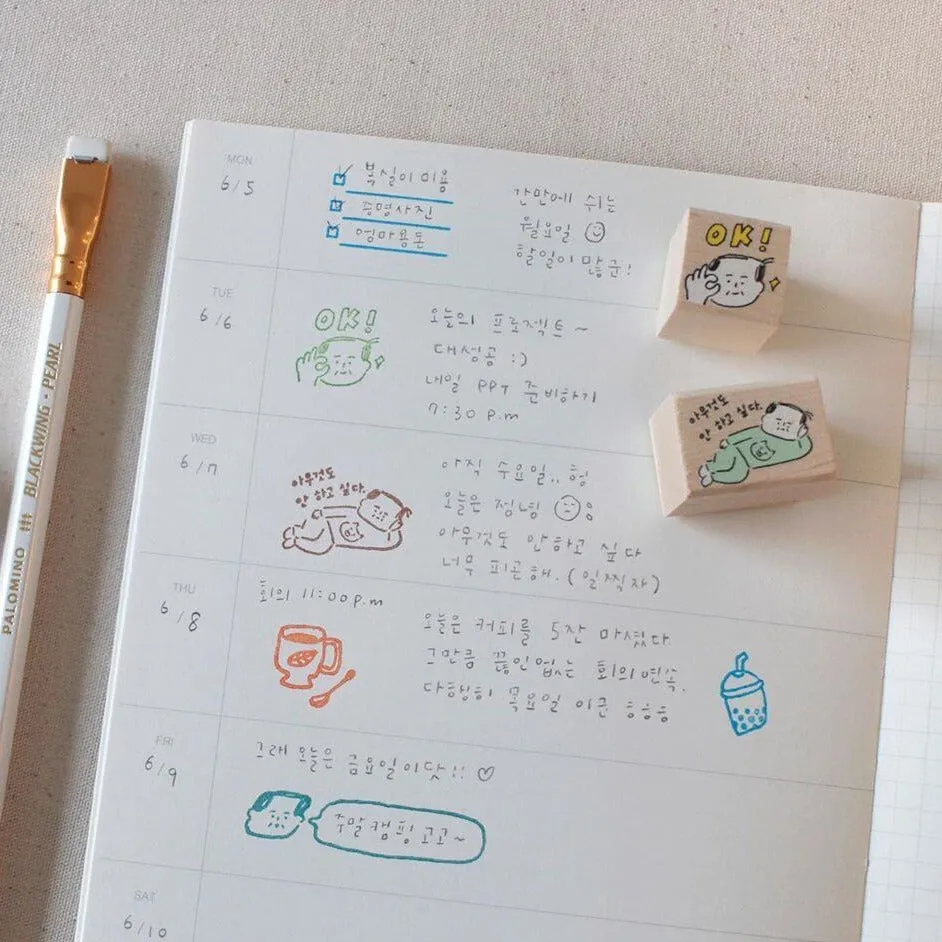 MON
6/5
복실이 미용
증명사진
엄마용돈
간만에 쉬는
월요일
할일이 많군!
OK!
TUE
6/6
OK!
오늘의 프로젝트~
대성공 :)
내일 PPT 준비하기
7:30 p.m
아무것도
안 하고 싶다.
WED
6/7
아무것도
안 하고 싶다.
아직 수요일.. 헝
오늘은 정녕
아무것도 안하고 싶다
너무 피곤해. (일찍자)
THU
6/8
회의 11:00 p.m
오늘은 커피를 5잔 마셨다.
그만큼 끊임없는 회의연속.
다행히 목요일 이군 ㅎㅎㅎ
FRI
6/9
그래 오늘은 금요일이닷!! ♡
주말캠핑 고고~
SAT
6/10
PALOMINO BLACKWING · PEARL